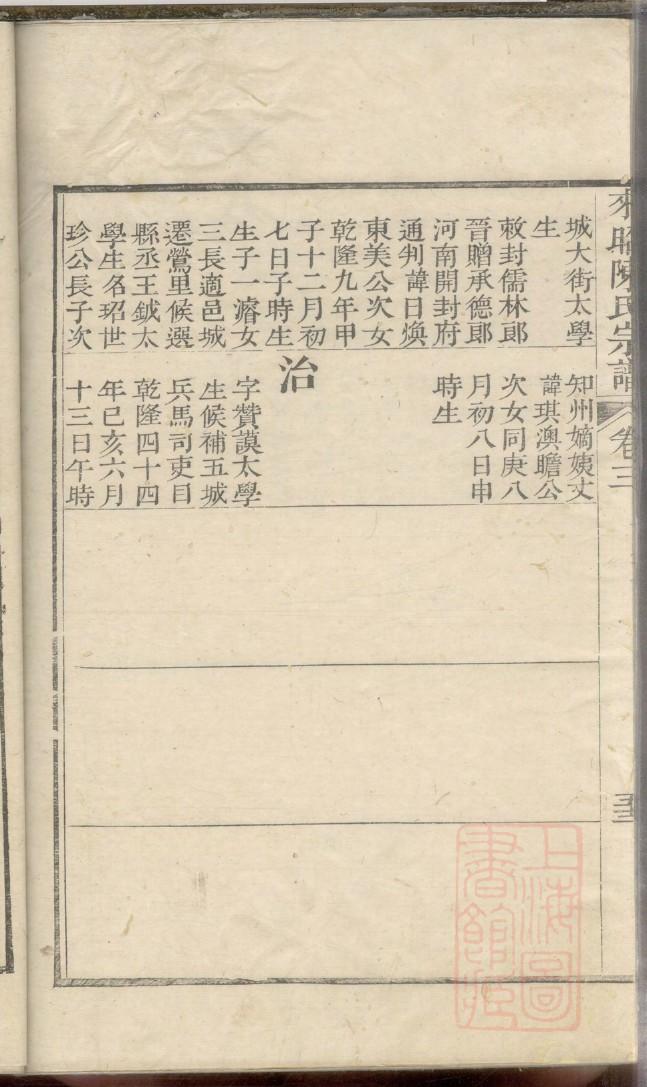 來昭陳氏宗譜
卷三
城大街太學
生
敕封儒林郎
晉贈承德郎
河南開封府
通判諱日煥
東美公次女
乾隆九年甲
子十二月初
七日子時生
生子一濬女
三長適邑城
遷鶯里候選
縣丞王鉞太
學生名玿世
珍公長子次
知州嫡姨丈
諱琪澳瞻公
次女同庚八
月初八日申
時生
治
字贊謨太學
生候補五城
兵馬司吏目
乾隆四十四
年已亥六月
十三日午時
上海圖
書館藏